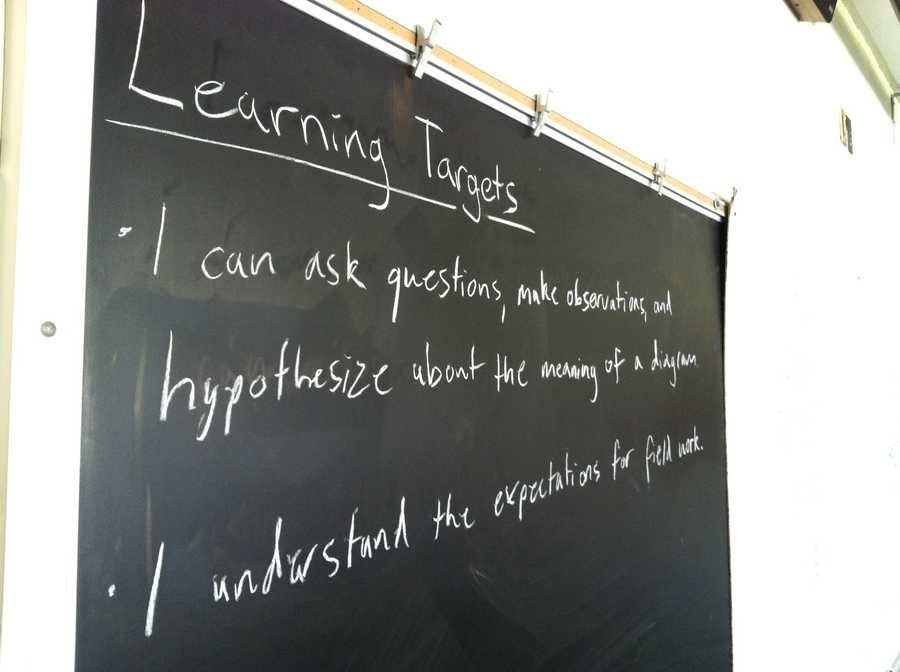 Learning Targets
· I can ask questions, make observations, and
hypothesize about the meaning of a diagram
· I understand the expectations for field work.